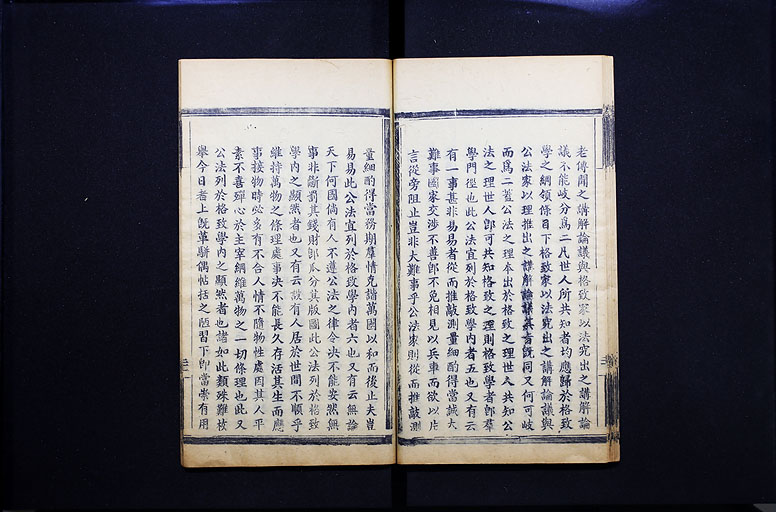 老傳聞之講解論議與格致家以法究出之講解論
議不能歧分爲二凡世人所共知者均應歸於格致
學之綱領條目下格致家以法究出之講解論議與
公法家以理推出之講解論議其旨旣同又何可岐
而爲二蓋公法之理本出於格致之理世人共知公
法之理世人卽可共知格致之理則格致學者卽羣
學門徑也此公法宜列於格致學內者五也又有云
有一事甚非易易者從而推敲測量細酌得當誠大
難事國家交涉不善卽不免相見以兵車而欲以片
言從旁阻止豈非大難事乎公法家則從而推敲測
量細酌得當務期羣情克諧萬國以和而後止夫豈
易易此公法宜列於格致學內者六也又有云無論
天下何國倘有人不遵公法之律令决不能安然無
事非斷罰其錢財卽瓜分其版圖此公法列於格致
學內之顯然者也又有云設有人居於世間不順乎
維持萬物之條理處事决不能長久存活其生而應
事接物時必多有不合人情不隨物性處因其人平
素不喜殫心於主宰綱維萬物之一切條理也此又
公法列於格致學內之顯然者也諸如此類殊難枚
舉今日者上旣革駢偶帖括之陋習下卽當崇有用